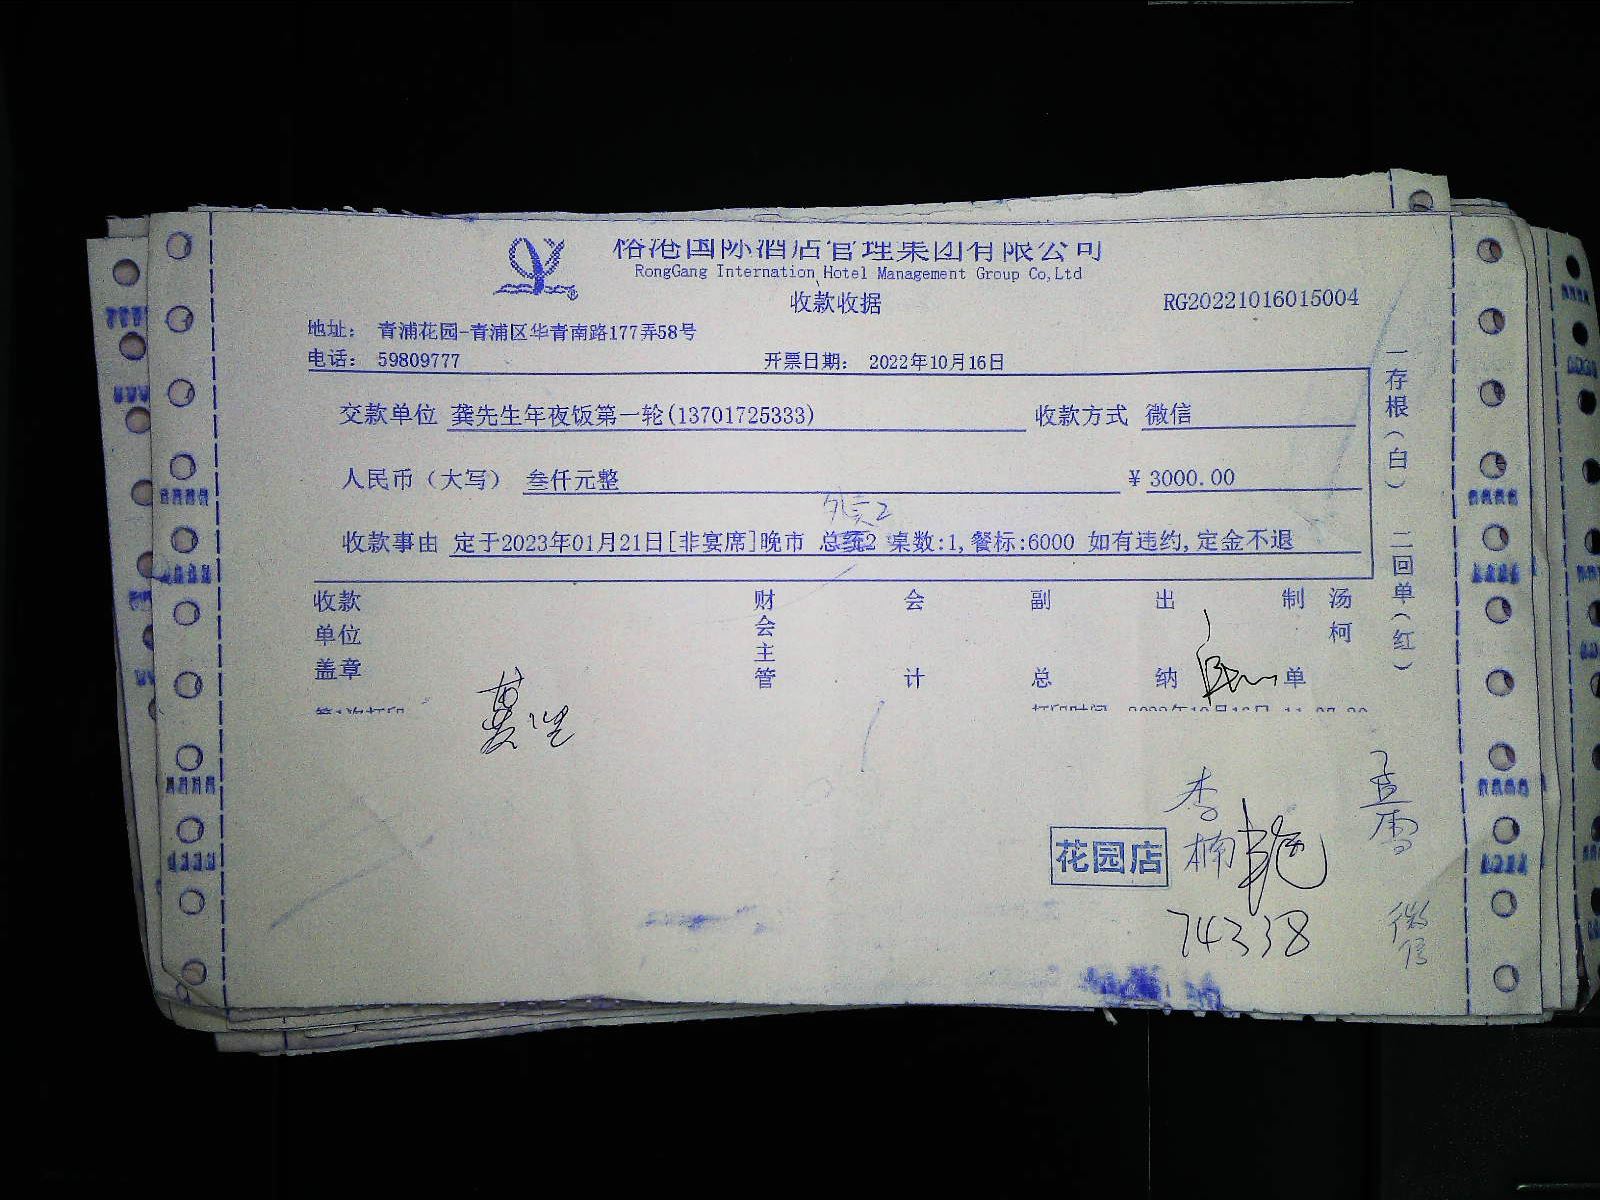 榕港国际酒店管理集团有限公司
RongGang Internation Hotel Management Group Co,Ltd
收款收据
RG20221016015004
地址： 青浦花园-青浦区华青南路177弄58号
电话： 59809777 开票日期： 2022年10月16日
交款单位 龚先生年夜饭第一轮(13701725333) 收款方式 微信
人民币（大写） 叁仟元整 ￥3000.00
外卖2
收款事由 定于2023年01月21日[非宴席]晚市 总统2 桌数:1,餐标:6000 如有违约,定金不退
收款单位盖章 财会主管 会计 副总 出纳 制单 汤柯
一存根（白） 二回单（红）
第1次打印 打印时间
李楠
孟雨
花园店
74338
微信